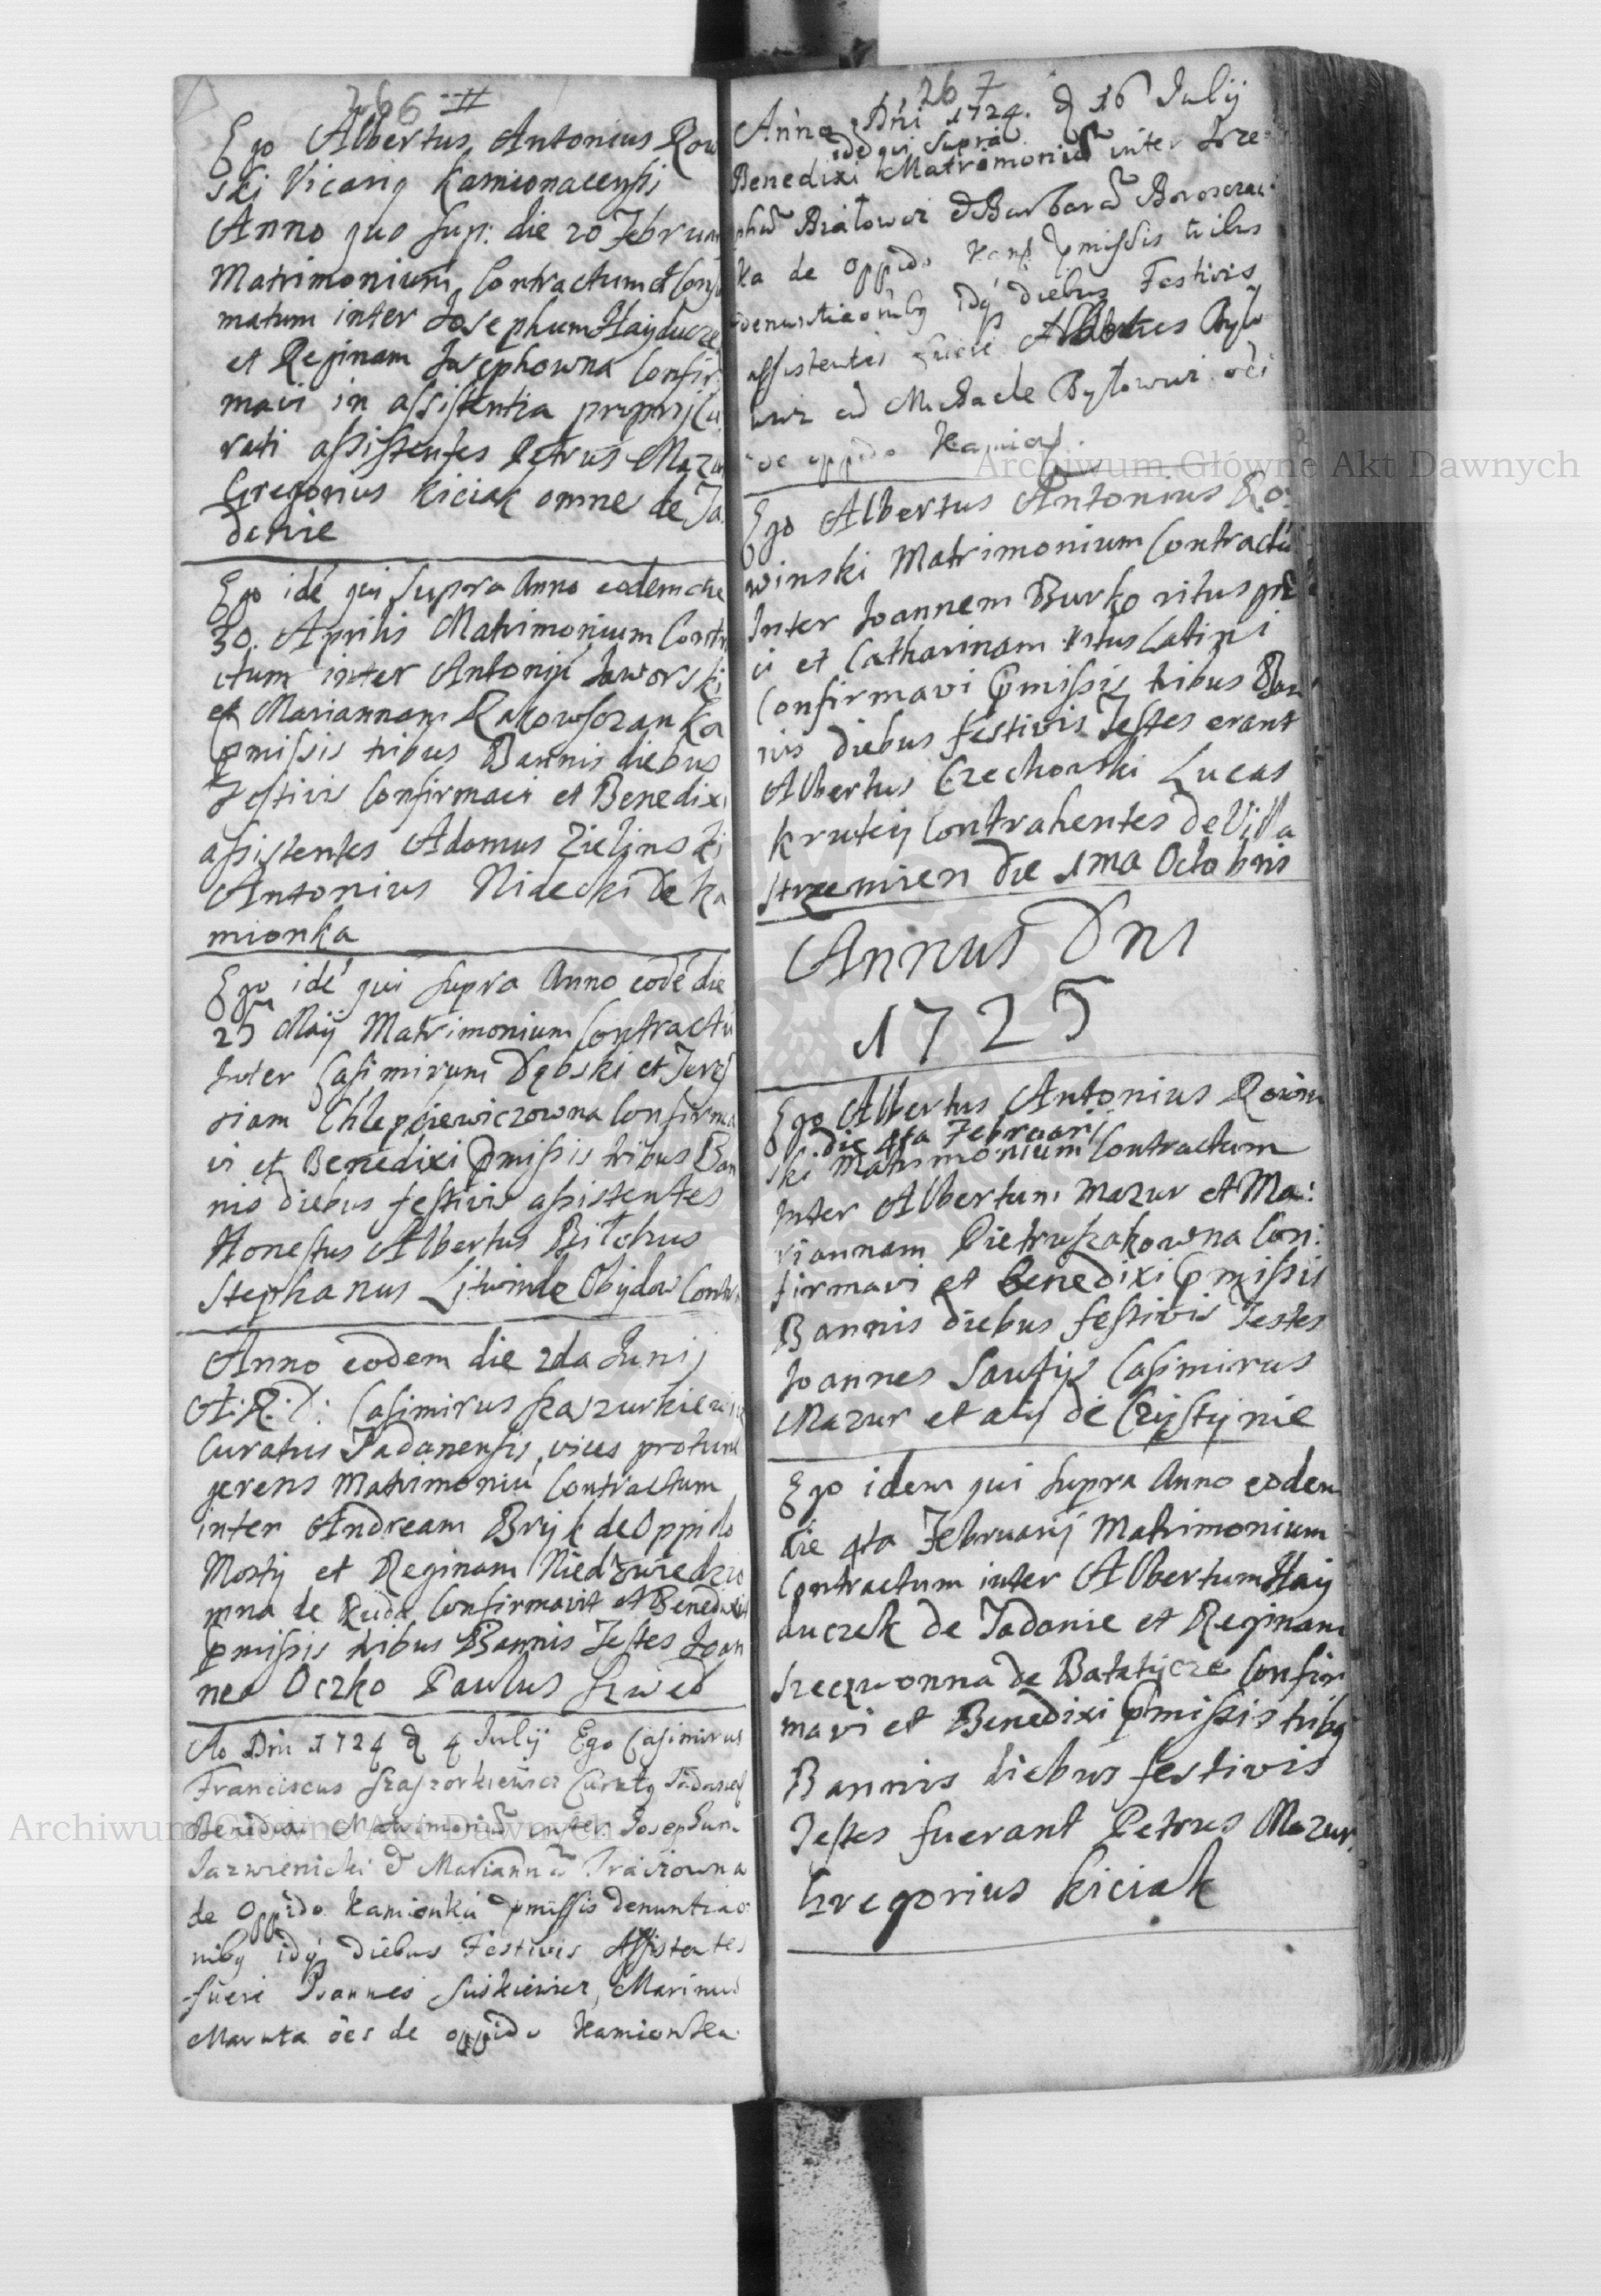 266
Ego Albertus Antonius Row
ski Vicariq Kamionacensis
Anno quo sup: die 20 Februar
Matrimonium Contractum et Consu
matum inter Josephum Haÿducze
et Reginam Josephowna Confir
mavi in assistentia proprij Cu
rati assistentes Petrus Mazur
Gregorius Kiciak omnes de Ja
danie
Ego idé qui supra Anno eodem die
30. Aprilis Matrimonium Contra
ctum inter Antoniú Jaworski
et Mariannam Rakowszanka
pmissis tribus Bannis diebus
Festivis Confirmavi et Benedixi
assistentes Adamus Zielinski
Antonius Nidecki de Ka
mionka
Ego idé qui supra Anno eodé die
25 Maÿ Matrimonium Contractú
Inter Casimirum Dębski et
siam Chlepciewiczowna Confirma
vi et Benedixi pmissis tribus Ban
nis diebus festivis assistentes
Honestus Albertus Bitohus
Stephanus Litwin de Obÿdow
Anno eodem die 2da Junij
A: R: D: Casimirus
Curatus Jadanensis, vices protunc
gerens Matrimoniú Contractum
inter Andream Brÿk de Oppido
Mostÿ et Reginam Niedzwiedzio
wna de Ruda Confirmavit et Benedixit
pmissis tribus Bannis Testes Joan
nes Oczko Paulus Szwed
Ao Dni 1724 d 4 Julij Ego Casimirus
Franciscus Curatq
Benedixi Matrimoniũ inter Josephum
Jazwienicki et Mariannã
de Oppido Kamionka pmissis denuntiao
nibq idq diebus Festivis Assistentes
fuere Joannes Suskiewicz, Marinus
Maruta oes de oppido Kamionka
267
Anno Dni 1724. d 16 Julij
idé qui supra
Benedixi Matrimoniũ inter
Białowic et Barbarã
ka de Oppido Kam pmissis tribus
denuntiaonibq idq diebus Festivis
assistentes fuere Albertus Było
wic et Michaele Byłowic oes
de oppido
Ego Albertus Antonius Ro:
winski Matrimonium Contractú
Inter Joannem Burko ritus græ
ci et Catharinam ritus Latini
Confirmavi pmissis tribus Ban
nis diebus festivis Testes erant
Albertus Czechowski Lucas
Krutÿ Contrahentes de Villa
Strzemien die 1ma Octobris
Annus Dni
1725
Ego Albertus Antonius Rowin
die 4ta Februarij
ski Matrimonium Contractum
Inter Albertum Mazur et Ma:
riannam Pietruszakowna Con:
firmavi et benedixi pmissis
Bannis diebus festivis Testes
Joannes Casimirus
Mazur et alÿ de Czÿstÿnie
Ego idem qui supra Anno eodem
die 4ta Februarij Matrimonium
Contractum inter Albertum Haÿ
duczek de Jadanie et Reginam
de Batatÿcze Confir
mavi et Benedixi pmissis tribq
Bannis diebus festivis
Testes fuerant Petrus Mazur.
Gregorius Kiciak
Archiwum Główne Akt Dawnych
Archiwum Główne Akt Dawnych